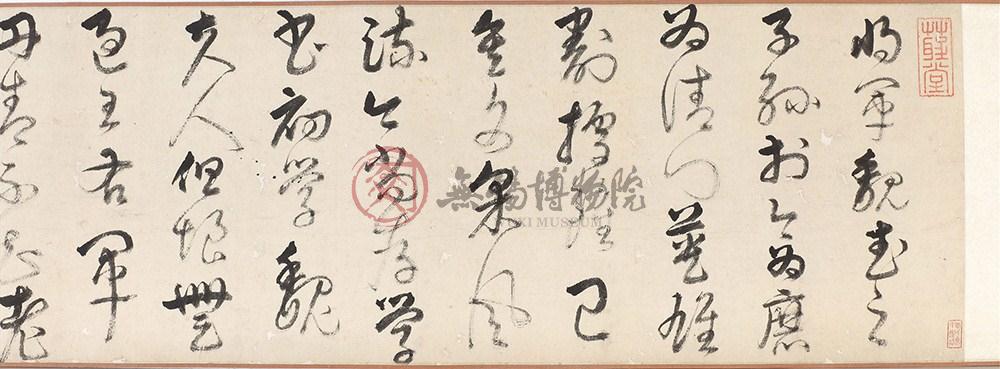 將軍魏武之
子孫於今為庶
為清門英雄
割據雖已
矣文采風
流今尚存學
書初學魏
夫人但恨無
過王右軍
丹青不知老
無錫博物院
WUXI MUSEUM